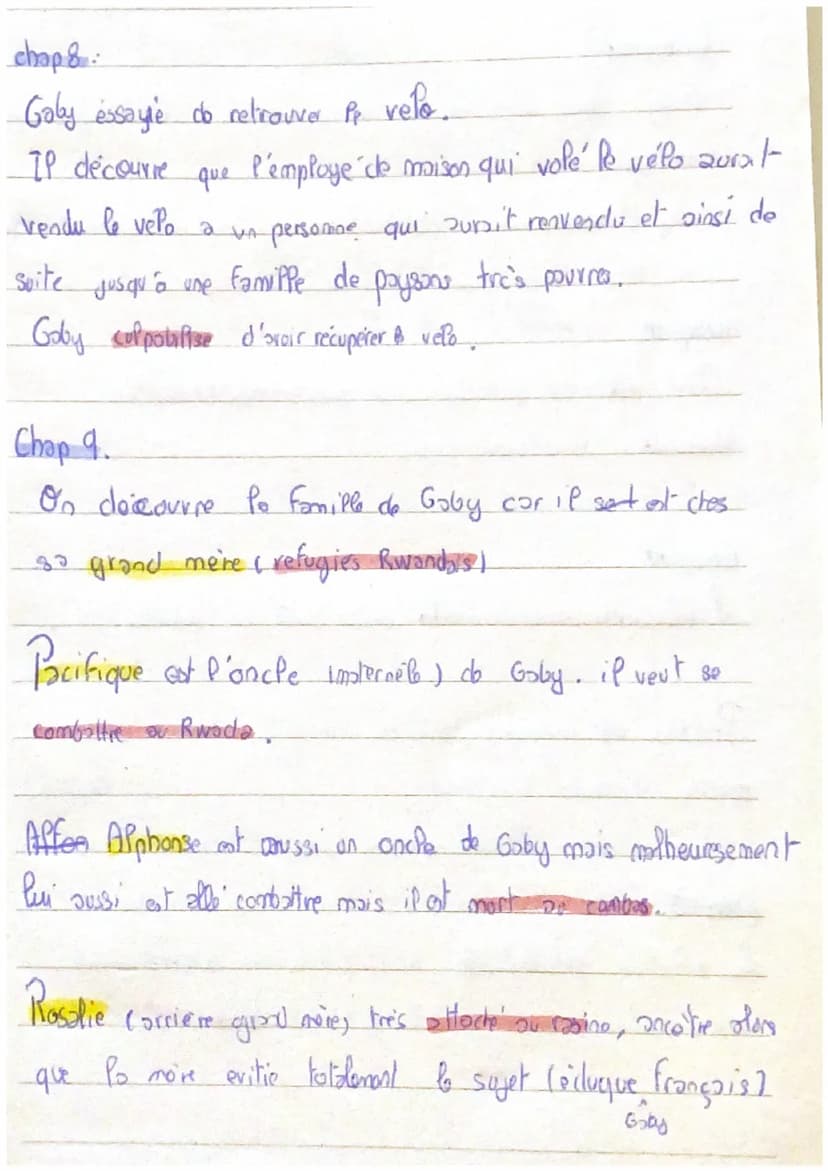 chap 8 :
Gaby éssayé de retrouver le velo.
Il découvre que l'employé de maison qui volé le vélo aurait
vendu le velo a un personne qui aurait renvendu et ainsi de
suite jusqu'à une famille de paysans très pauvres.
Gaby culpabilise d'avoir récupérer le velo.
Chap 9.
On découvre la famille de Gaby car il est ches
sa grand mère (refugies Rwandais)
Pacifique est l'oncle (maternelle) de Gaby. il veut se
combattre au Rwada.
Alphonse est aussi un oncle de Gaby mais malheursement
lui aussi est allé combattre mais il est mort au combas.
Rosalie (arrière grand mère) très attaché au racine, ancêtre alors
que la mère evitie totalement le sujet (éduque français)
Gaby